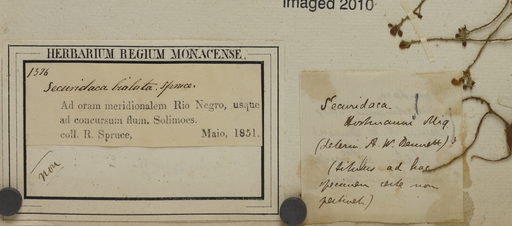 Imaged 2010
HERBARIUM REGIUM MONACENSE.
1576
Securidaca bialata. Spruce.
Ad oram meridionalem Rio Negro, usque
ad concursum flum. Solimoes.
coll. R. Spruce, Maio, 1851.
non
Securidaca
Hostmanni Miq
(determ. A. W. Bennett)
(titulus ad hoc
specimen certe non
pertinet)